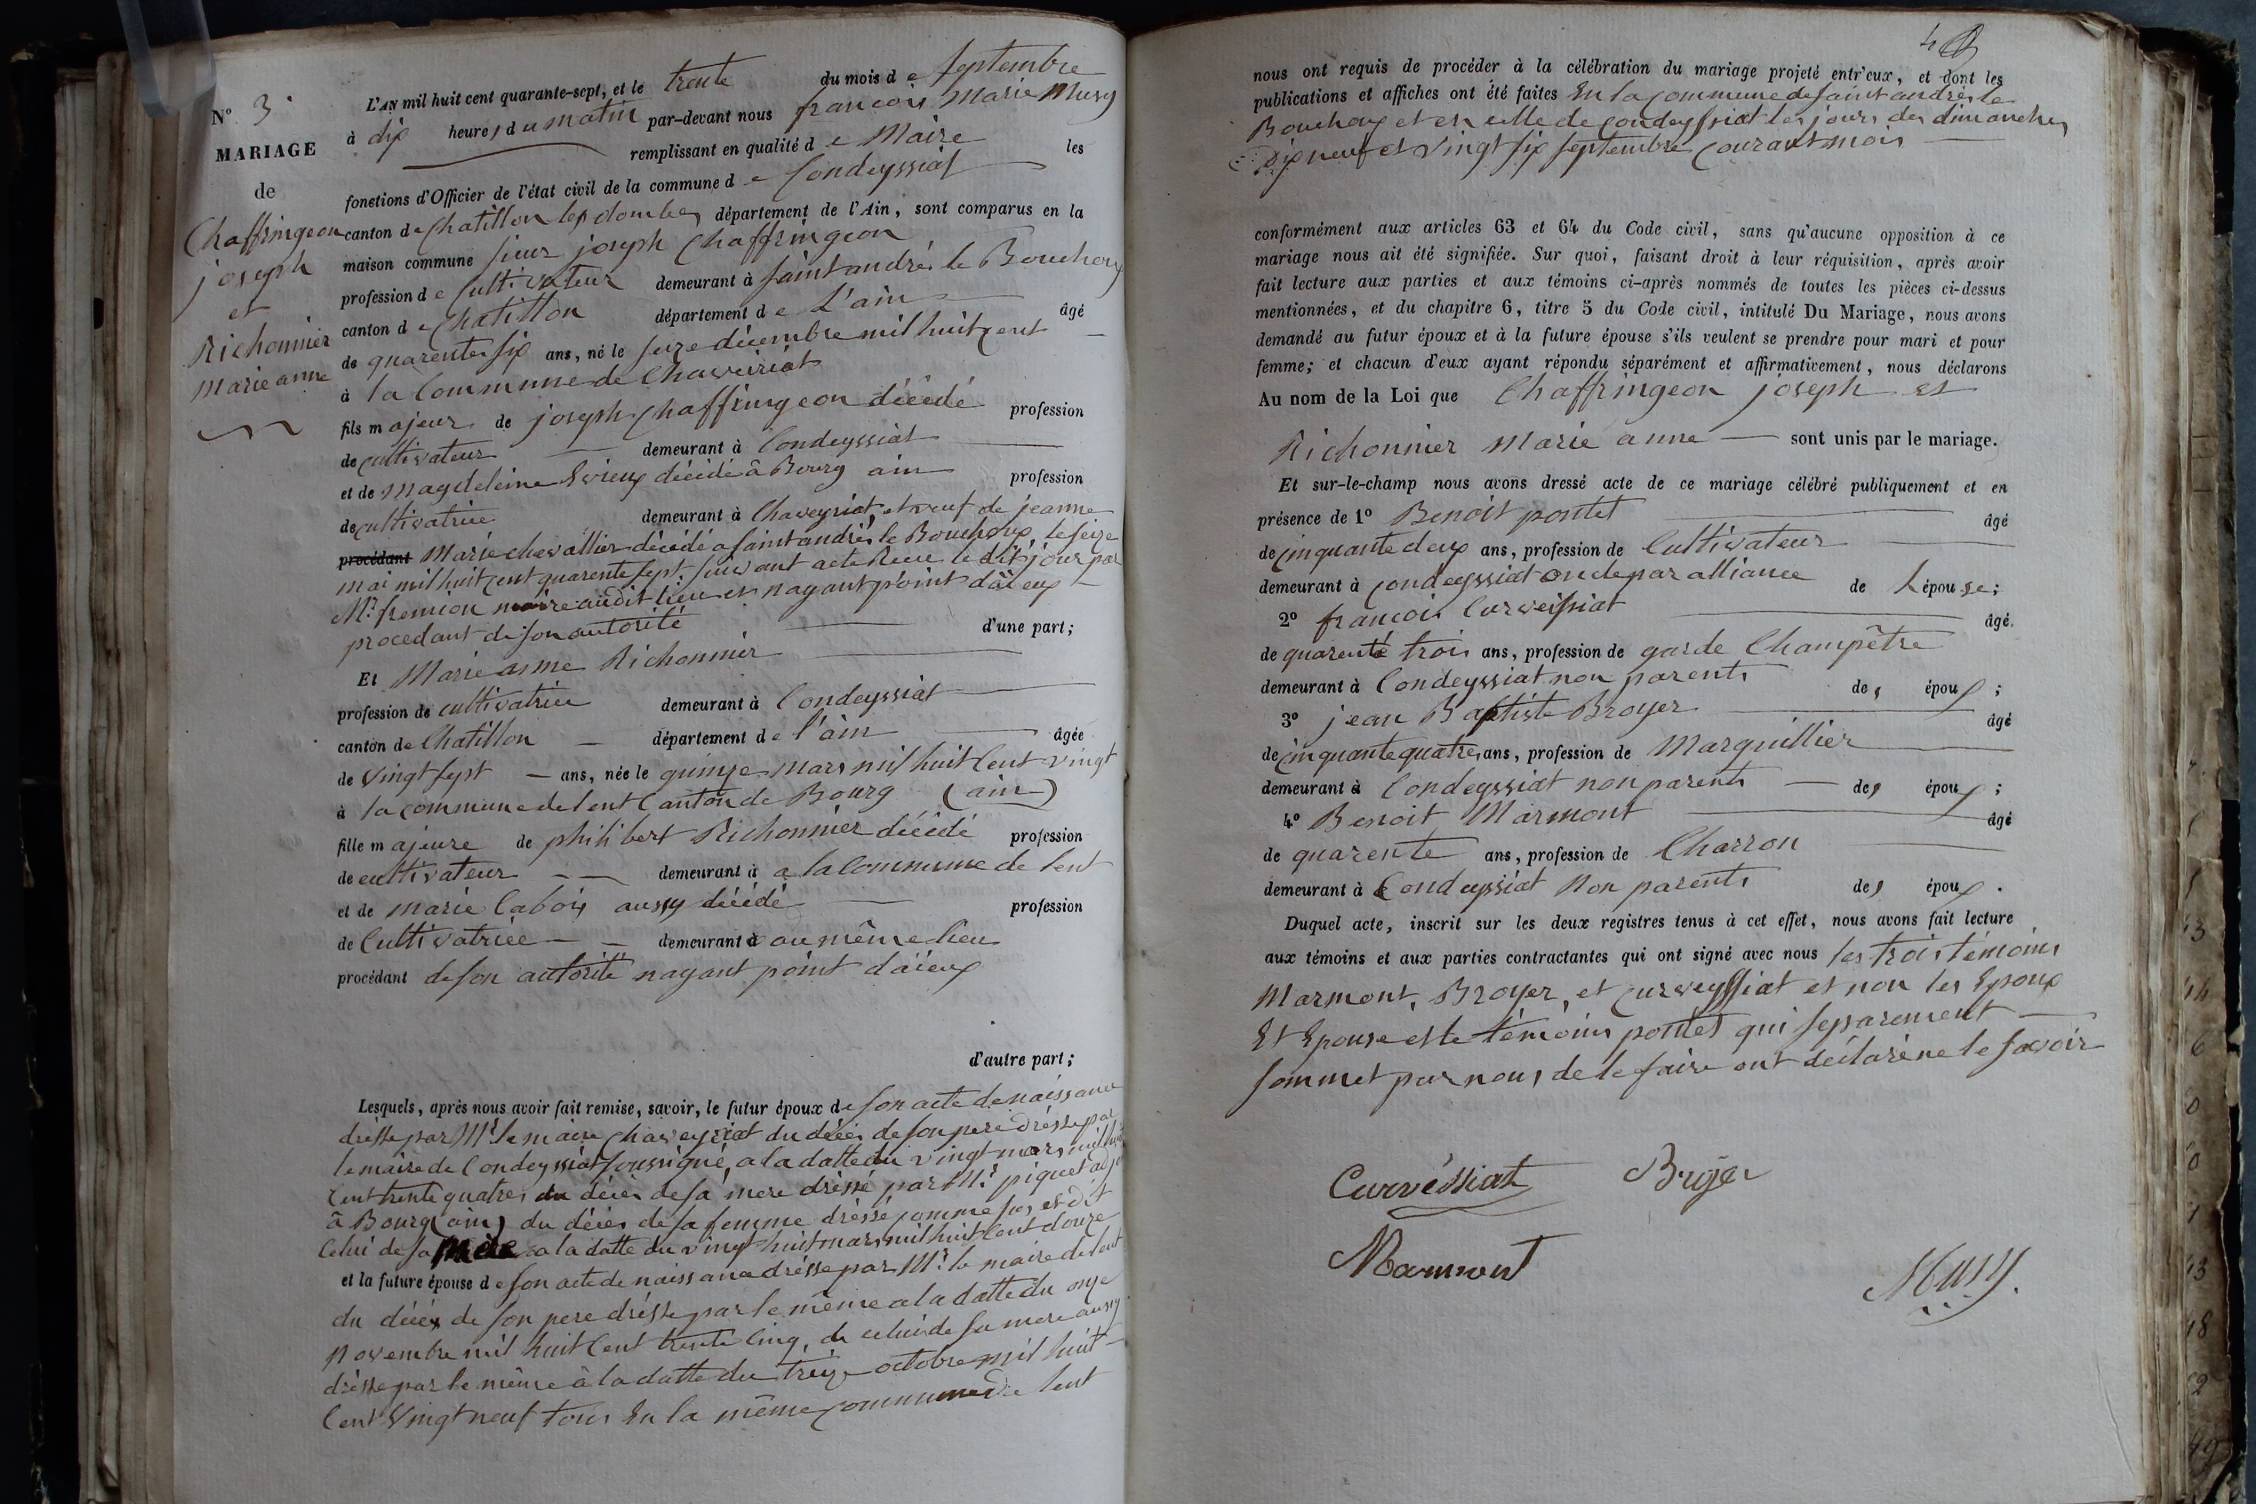 N° 3
MARIAGE
de
Chaffringeon
joseph
et
Richonnier
marie anne
L'AN mil huit cent quarante-sept, et le trente du mois de Septembre
à dix heures du matin par-devant nous francois Marie Musy
remplissant en qualité de Maire les
fonctions d'Officier de l'état civil de la commune de Condeyssiat
canton de Chatillon les dombes département de l'Ain, sont comparus en la
maison commune sieur joseph Chaffringeon
profession de Cultivateur demeurant à saint andré le Bouchoux
canton de Chatillon département de L'ain âgé
de quarente six ans, né le seize décembre mil huit cent
à la Commune de Chaveiriat
fils majeur de joseph Chaffringeon décédé profession
de cultivateur demeurant à Condeyssiat
et de magdeleine Evieux décédé à Bourg ain profession
de cultivatrice demeurant à Chaveyriat et veuf de jeanne
procédant Marie chevallier décédé a saint andré le Bouchoux le seize
mai mil huit cent quarente sept suivant acte Recu le dit jour par
Mr. fremion maire audit lieu et nayant point d'aieux
procedant de son autorité d'une part;
Et Marie anne Richonnier
profession de cultivatrice demeurant à Condeyssiat
canton de Chatillon département de l'ain âgée
de vingt sept ans, née le quinze mars mil huit Cent vingt
à la commune de lent Canton de Bourg (ain)
fille majeure de philibert Richonnier décédé profession
de cultivateur demeurant à a la Commune de lent
et de marie Cabois aussy décédé profession
de Cultivatrice demeurant à au même lieu
procédant de son autorité nayant point d'aïeux
d'autre part;
Lesquels, après nous avoir fait remise, savoir, le futur époux de son acte de naissance
drésse par Mr. le maire Chaveyriat du décés de son pere dréssé par
le maire de Condeyssiat soussigné, a la datte du vingt mars mil huit
Cent trente quatre, du décés de sa mere dréssé par Mr. piquet adj
à Bourg (ain) du décés de sa femme dréssé comme sus est dit
Celui de sa mère a la datte du vingt huit mars mil huit Cent douze
et la future épouse de son acte de naissance drésse par Mr. le maire de lent
du décés de son pere drésse par le même a la datte du onze
novembre mil huit Cent trente Cinq, de celui de sa mere aussy
drésse par le même à la datte du treize octobre mil huit
Cent Vingt neuf tous En la même commune de lent
4
nous ont requis de procéder à la célébration du mariage projeté entr'eux, et dont les
publications et affiches ont été faites En la commune de saint andré le
Bouchoux et en celle de Condeyssiat les jours des dimanches
Dix neuf et vingt six septembre Courant mois
conformément aux articles 63 et 64 du Code civil, sans qu'aucune opposition à ce
mariage nous ait été signifiée. Sur quoi, faisant droit à leur réquisition, après avoir
fait lecture aux parties et aux témoins ci-après nommés de toutes les pièces ci-dessus
mentionnées, et du chapitre 6, titre 5 du Code civil, intitulé Du Mariage, nous avons
demandé au futur époux et à la future épouse s'ils veulent se prendre pour mari et pour
femme; et chacun d'eux ayant répondu séparément et affirmativement, nous déclarons
Au nom de la Loi que Chaffringeon joseph et
Richonnier Marie anne sont unis par le mariage.
Et sur-le-champ nous avons dressé acte de ce mariage célébré publiquement et en
présence de 1° Benoit pontet âgé
de cinquante deux ans, profession de Cultivateur
demeurant à Condeyssiat oncle par alliance de L'épouse;
2° francois Curveissiat âgé
de quarente trois ans, profession de garde Champêtre
demeurant à Condeyssiat non parents des époux;
3° jean Baptiste Broyer âgé
de cinquante quatre ans, profession de Marguillier
demeurant à Condeyssiat non parents des époux;
4° Benoit Marmont âgé
de quarente ans, profession de Charron
demeurant à Condeyssiat Non parents des époux.
Duquel acte, inscrit sur les deux registres tenus à cet effet, nous avons fait lecture
aux témoins et aux parties contractantes qui ont signé avec nous les trois témoins
Marmont, Broyer, et Curveyssiat et non les Epoux
Et Epouse et le témoins pontet qui separement
sommet par nous de le faire ont déclaré ne le savoir
Curvéssiat
Broyer
Marmont
Musy.